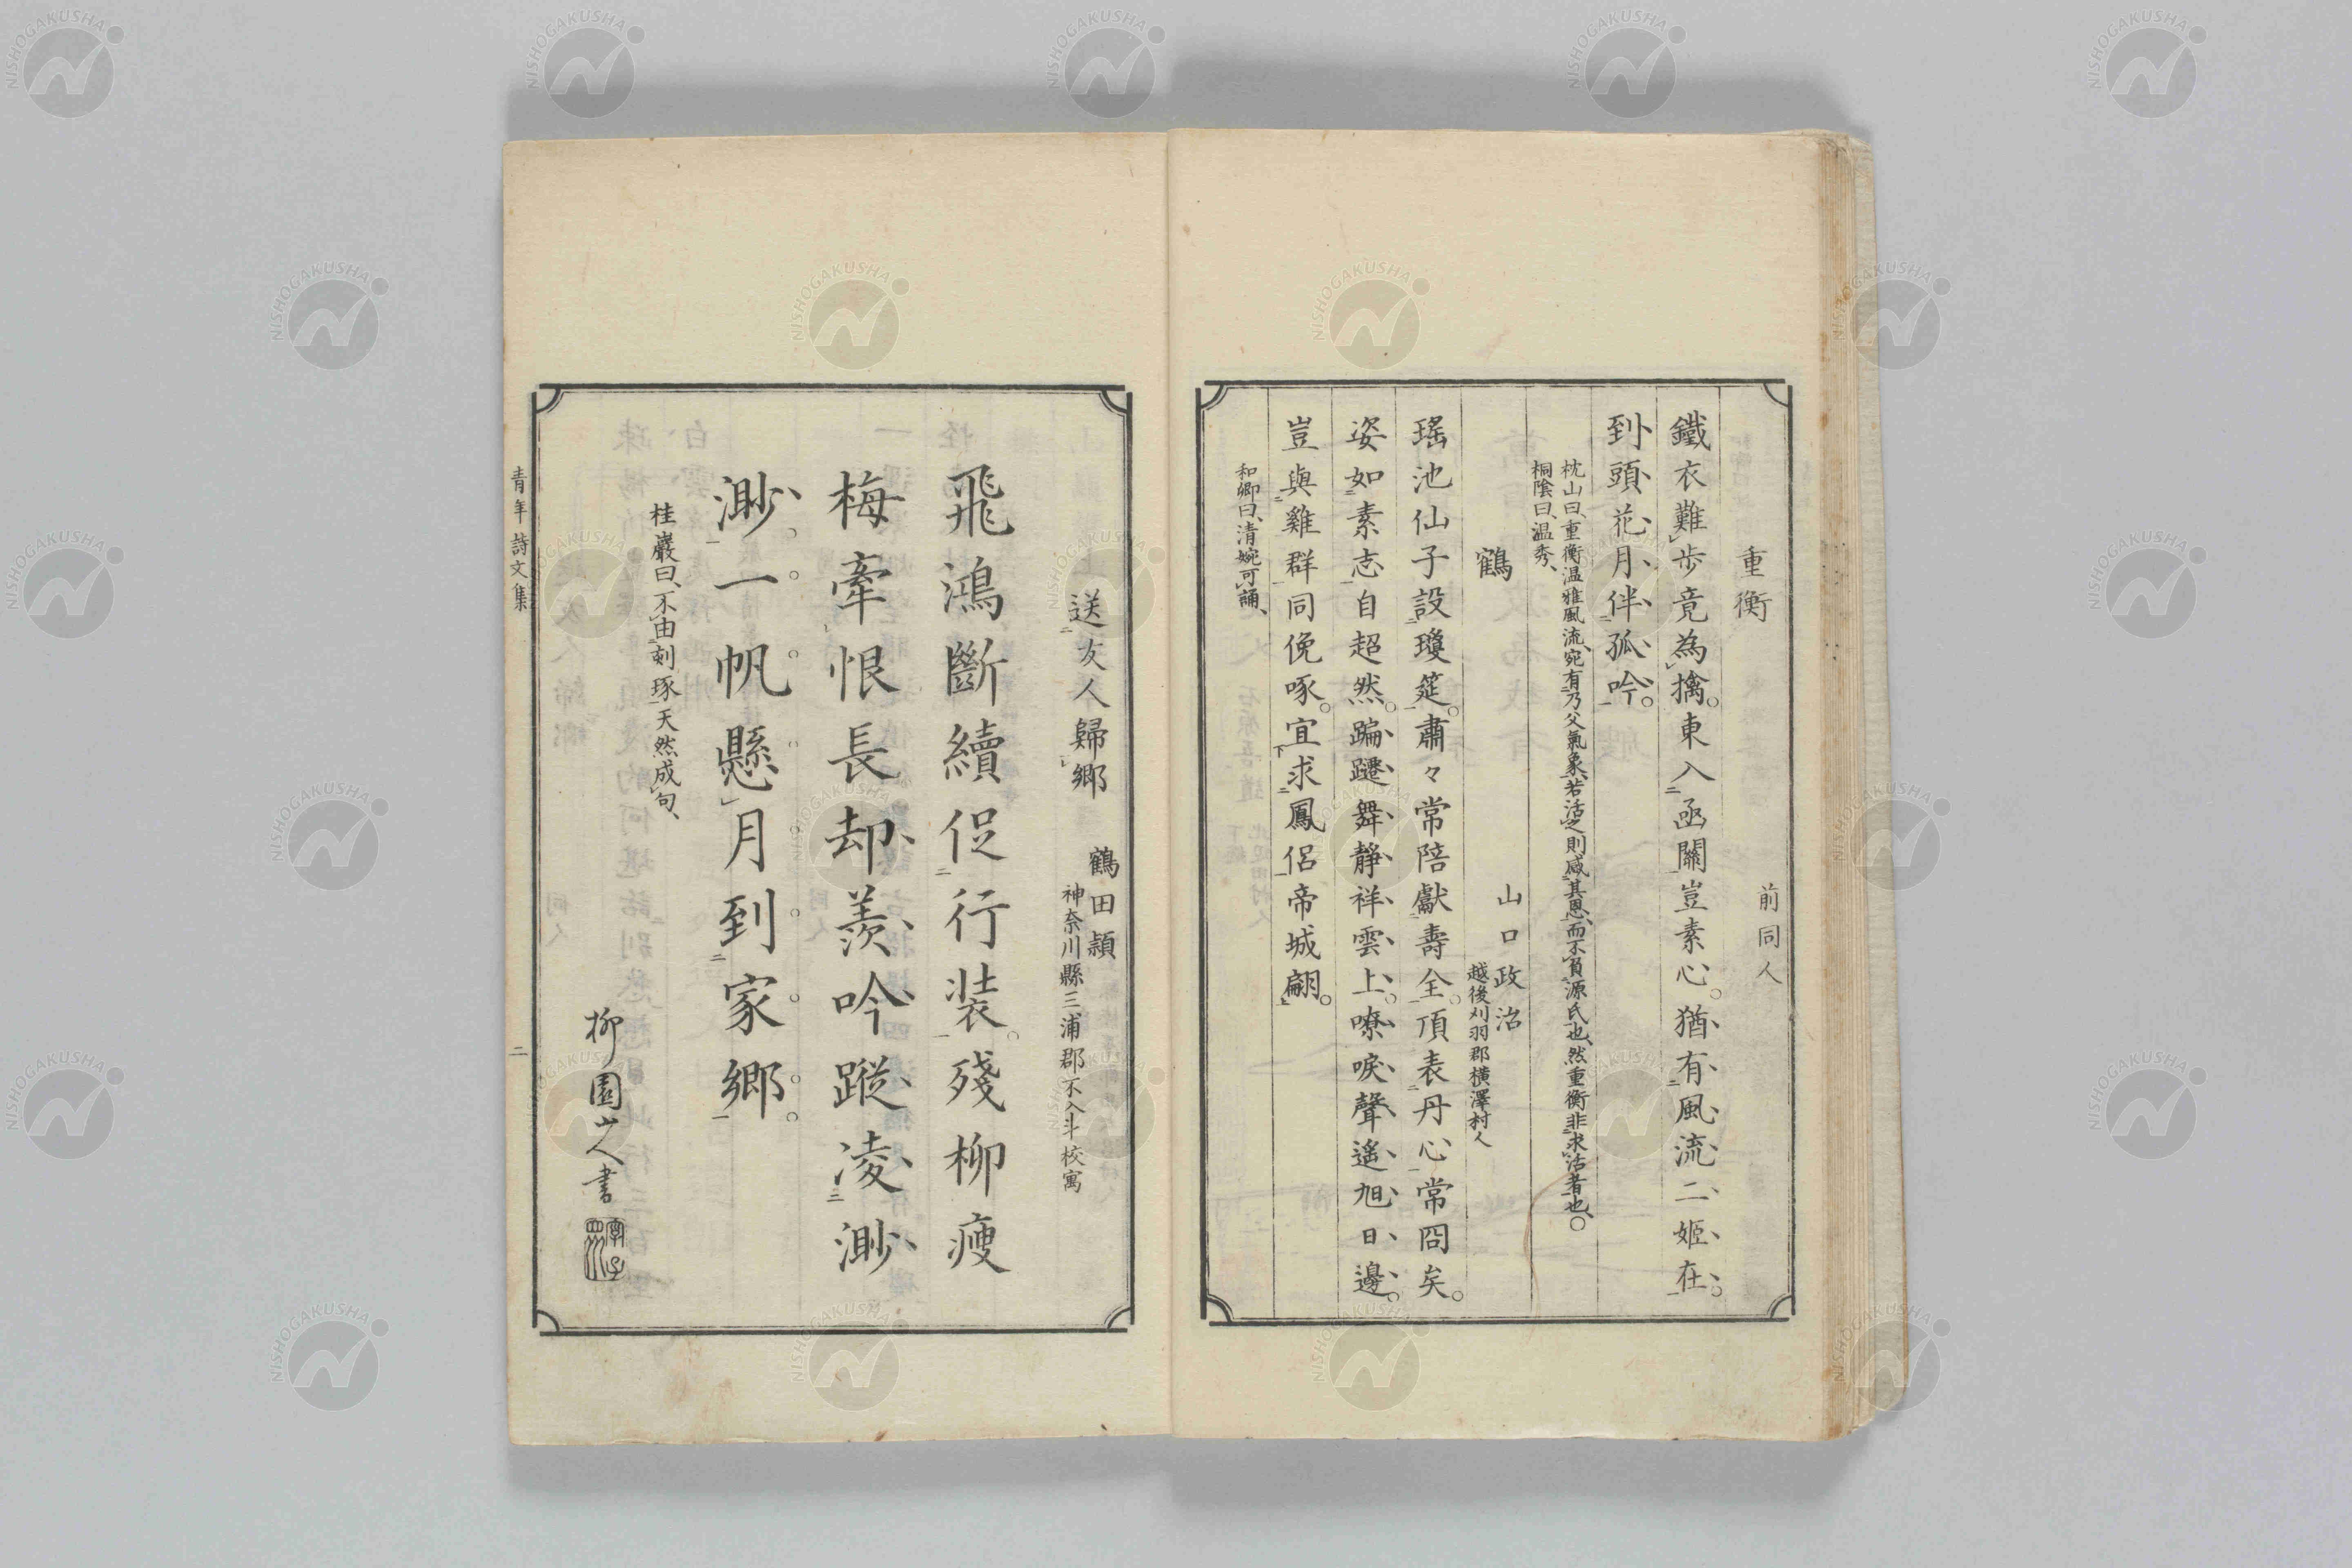 重衡
前同人
鐵衣難歩竟為擒。東入函關豈素心。猶有風流二姬在。
到頭花月伴孤吟。
枕山曰、重衡温雅風流、宛有乃父氣象、若活之則感其恩、而不負源氏也、然重衡非求活者也、○
桐陰曰、温秀、
鶴
山口政治
越後刈羽郡横澤村人
瑤池仙子設瓊筵。肅々常陪獻壽全。頂表丹心常冏矣。
姿如素志自超然。蹁躚舞静祥雲上。嘹唳聲遙旭日邊。
豈與雞群同俛啄。宜求鳳侶帝城翩。
和卿曰、清婉可誦、
送友人歸郷
鶴田頴
神奈川縣三浦郡不入斗校寓
飛鴻斷續促行装。殘柳瘦
梅牽恨長却羨吟蹤凌渺
渺一帆懸月到家郷。
桂巖曰、不由刻琢、天然成句、
柳園山人書
青年詩文集
二
NISHOGAKUSHA